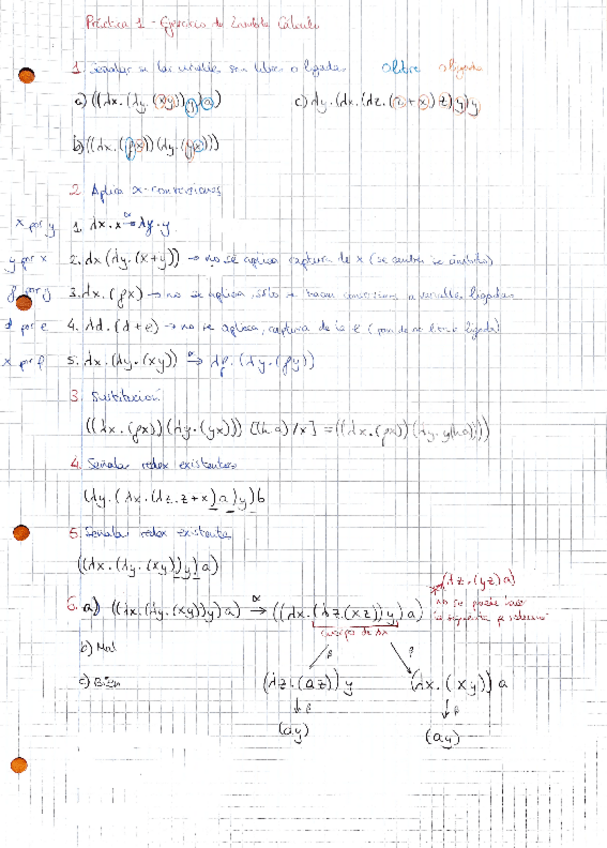 Práctica 1 - Ejercicio de Lambda Cálculo
1. Señalar si las variables son libres o ligadas o libre o ligada
a) ((λx.(λy.(xy))y)a) c) λy.(λx.(λz.(z+x)z)y)y
b) ((λx.(px))(λy.(yx)))
2. Aplica α-conversiones
x por y 1. λx.x →α λy.y
y por x 2. λx(λy.(x+y)) → no se aplica captura de x (se cambia de ámbito)
p por y 3. λx.(px) → no se aplica, sólo se hacen conversiones a variables ligadas
d por e 4. λd.(d+e) → no se aplica, captura de la e
x por p 5. λx.(λy.(xy)) →α λp.(λy.(py))
3. Sustitución
((λx.(px))(λy.(yx))) [(h a)/x] = ((λx.(px))(λy.y(ha)))
4. Señala redex existentes
(λy.(λx.(λz.z+x)a)y)b
5. Señala redex existentes
((λx.(λy.(xy))y)a)
(λz.(yz)a)
6. a) ((λx.(λy.(xy))y)a) →α ((λx.(λz.(xz))y)a) no se puede
cuerpo de λx
b) Mal
c) Bien (λz.(az))y (λx.(xy))a
β β
(ay) (ay)